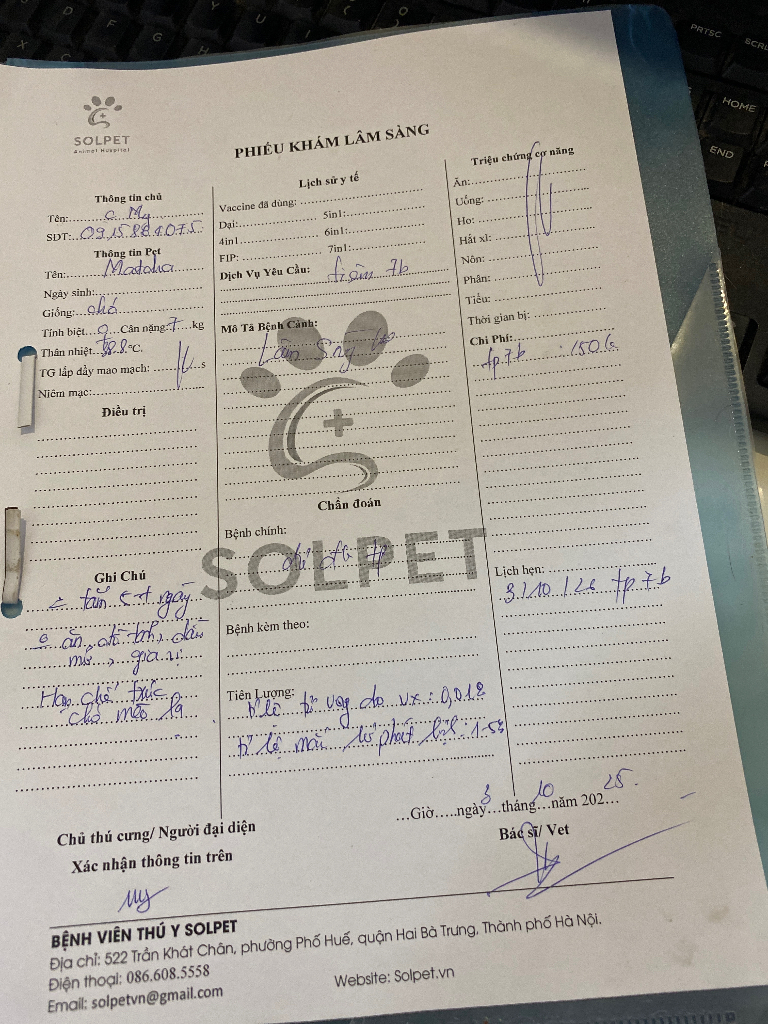 SOLPET
Animal Hospital
PHIẾU KHÁM LÂM SÀNG
Thông tin chủ
Tên: c. My
SĐT: 0915884075
Thông tin Pet
Tên:
Ngày sinh:
Giống: chó
Tính biệt ♀ Cân nặng 7 kg
Thân nhiệt 38.8 °C
TG lấp đầy mao mạch: s
Niêm mạc:
Điều trị
Ghi Chú
tắm 5-7 ngày
ăn, dầu
mỡ, gia vị
Hạn chế
chó mèo lạ
Lịch sử y tế
Vaccine đã dùng:
Dại: 5in1:
4in1 6in1:
FIP: 7in1:
Dịch Vụ Yêu Cầu: tiêm 7b
Mô Tả Bệnh Cảnh:
Lâm sàng
Chẩn đoán
Bệnh chính:
SOLPET
Bệnh kèm theo:
Tiên Lượng:
tỉ lệ tử vong do vx: 0,01%
tỉ lệ phát bệnh: 1-5%
Triệu chứng cơ năng
Ăn:
Uống:
Ho:
Hắt xì:
Nôn:
Phân:
Tiểu:
Thời gian bị:
Chi Phí:
tp7b : 150k
Lịch hẹn:
3/10/26 tp7b
Giờ ngày 3 tháng 10 năm 2025
Chủ thú cưng/ Người đại diện
Xác nhận thông tin trên
Bác sĩ/ Vet
My
BỆNH VIÊN THÚ Y SOLPET
Địa chỉ: 522 Trần Khát Chân, phường Phố Huế, quận Hai Bà Trưng, Thành phố Hà Nội.
Điện thoại: 086.608.5558
Website: Solpet.vn
Email: solpetvn@gmail.com
PRTSC
HOME
END